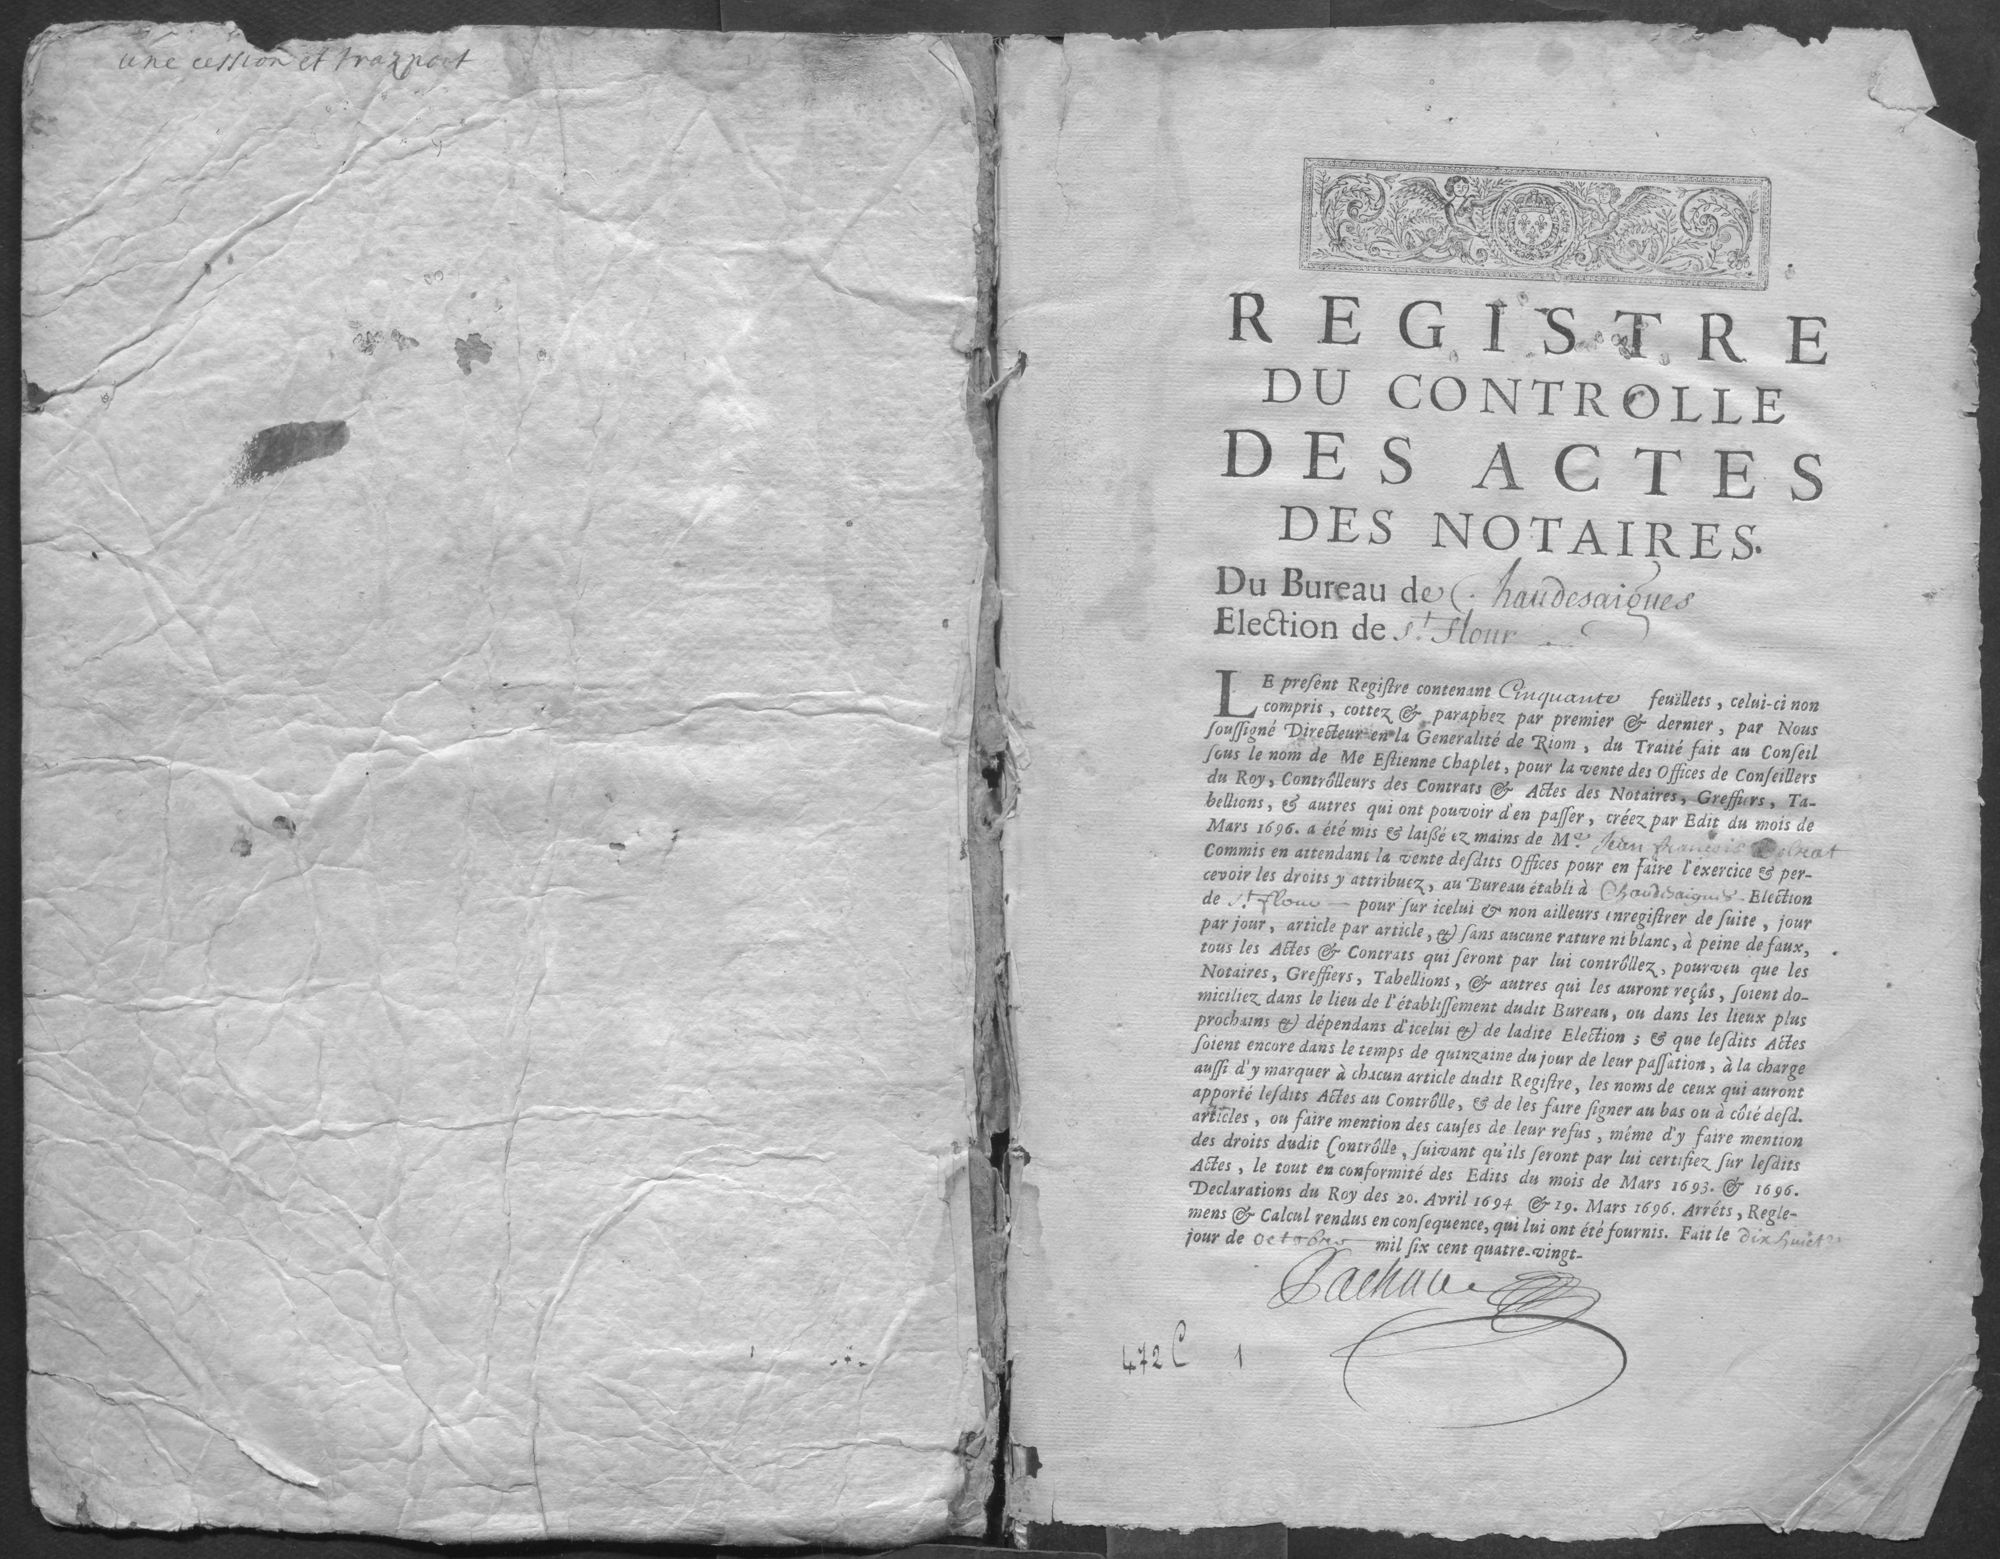 une cession et trazport
REGISTRE
DU CONTROLLE
DES ACTES
DES NOTAIRES.
Du Bureau de Chaudesaigues
Election de St. flour
LE preſent Regiſtre contenant Cinquante feuillets, celui-ci non
compris, cottez & paraphez par premier & dernier, par Nous
ſouſſigné Directeur en la Generalité de Riom, du Traité fait au Conſeil
ſous le nom de Me Eſtienne Chaplet, pour la vente des Offices de Conſeillers
du Roy, Contrôlleurs des Contrats & Actes des Notaires, Greffiers, Ta-
bellions, & autres qui ont pouvoir d'en paſſer, créez par Edit du mois de
Mars 1696. a été mis & laiſſé ez mains de Me. Jean françois
Commis en attendant la vente deſdits Offices pour en faire l'exercice & per-
cevoir les droits y attribuez, au Bureau établi à Chaudesaigues Election
de St. flour pour ſur icelui & non ailleurs enregiſtrer de ſuite, jour
par jour, article par article, & ſans aucune rature ni blanc, à peine de faux,
tous les Actes & Contrats qui ſeront par lui contrôllez, pourveu que les
Notaires, Greffiers, Tabellions, & autres qui les auront reçûs, ſoient do-
miciliez dans le lieu de l'établiſſement dudit Bureau, ou dans les lieux plus
prochains & dépendans d'icelui & de ladite Election; & que leſdits Actes
ſoient encore dans le temps de quinzaine du jour de leur paſſation, à la charge
auſſi d'y marquer à chacun article dudit Regiſtre, les noms de ceux qui auront
apporté leſdits Actes au Contrôlle, & de les faire ſigner au bas ou à côté deſd.
articles, ou faire mention des cauſes de leur refus, même d'y faire mention
des droits dudit Contrôlle, ſuivant qu'ils ſeront par lui certifiez ſur leſdits
Actes, le tout en conformité des Edits du mois de Mars 1693. & 1696.
Declarations du Roy des 20. Avril 1694 & 19. Mars 1696. Arrêts, Regle-
mens & Calcul rendus en conſequence, qui lui ont été fournis. Fait le dix huict
jour de octobre mil ſix cent quatre-vingt-
472 C 1